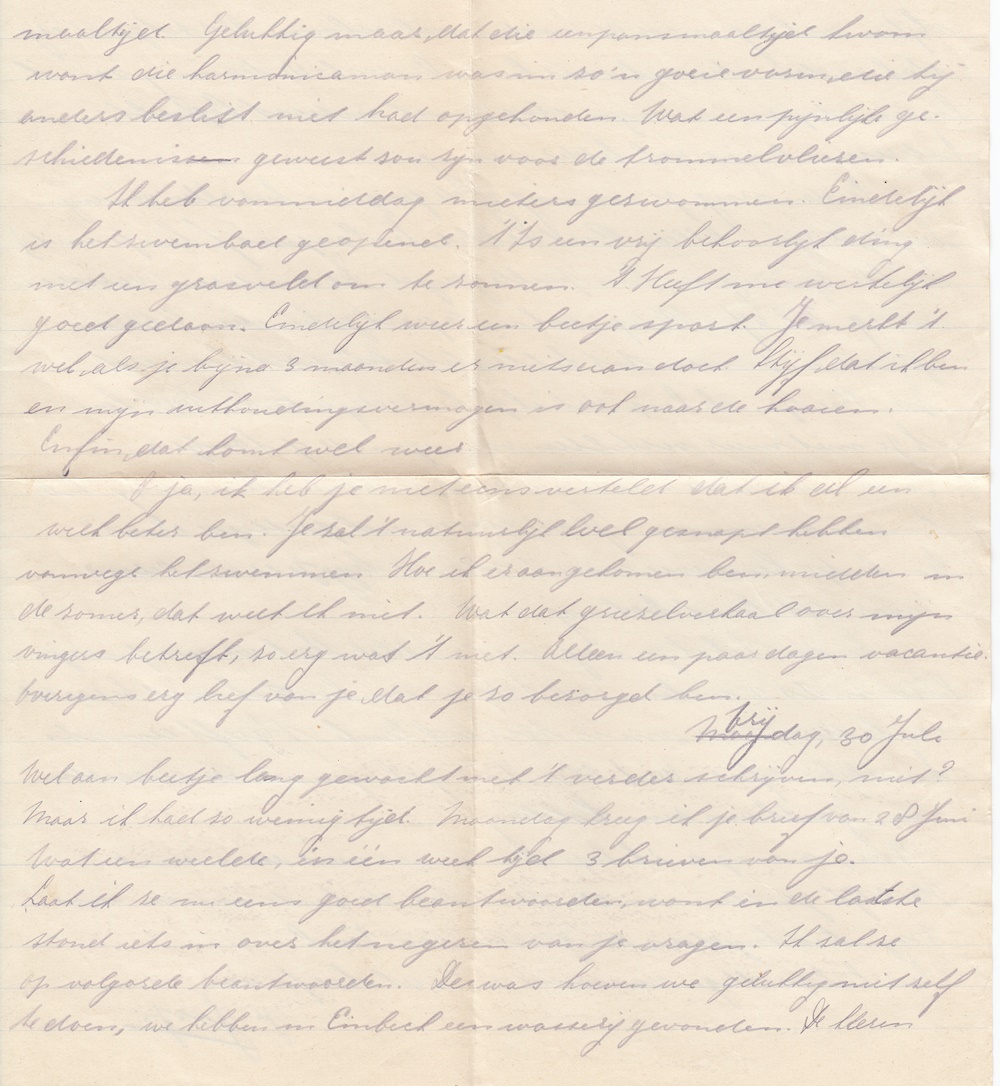 maaltijd. Gelukkig maar, dat die eenpansmaaltijd kwam
want die harmonicaman was in zo'n goeie vorm, die hij
anders beslist niet had opgehouden. Wat een pijnlijke ge-
schiedenis geweest zou zijn voor de trommelvliezen.
Ik heb vanmiddag mieters gezwommen. Eindelijk
is het zwembad geopend. 't Is een vrij behoorlijk ding
met een grasveld om te zonnen. 't Heeft me werkelijk
goed gedaan. Eindelijk weer een beetje sport. Je merkt 't
wel, als je bijna 3 maanden er niets aan doet. Stijf, dat ik ben
en mijn uithoudingsvermogen is ook naar de haaien.
Enfin, dat komt wel weer
O ja, ik heb je niet eens verteld dat ik al een
week beter ben. Je zal 't natuurlijk wel gesnapt hebben
vanwege het zwemmen. Hoe ik er aangekomen ben, midden in
de zomer, dat weet ik niet. Wat dat griezelverhaal over mijn
vingers betreft, zo erg was 't niet. Alleen een paar dagen vacantie.
Overigens erg lief van je, dat je zo bezorgd ben.
Vrijdag, 30 Juli
Wel aan beetje lang gewacht met 't verder schrijven, niet?
Maar ik had zo weinig tijd. Maandag kreeg ik je brief van 28 Juni
Wat een weelde, in één week tijd 3 brieven van je.
Laat ik ze nu eens goed beantwoorden, want in de laatste
stond iets in over het negeren van je vragen. Ik zal ze
op volgorde beantwoorden. De was hoeven we gelukkig niet zelf
te doen, we hebben in Einbeck een wasserij gevonden. Ik kleren